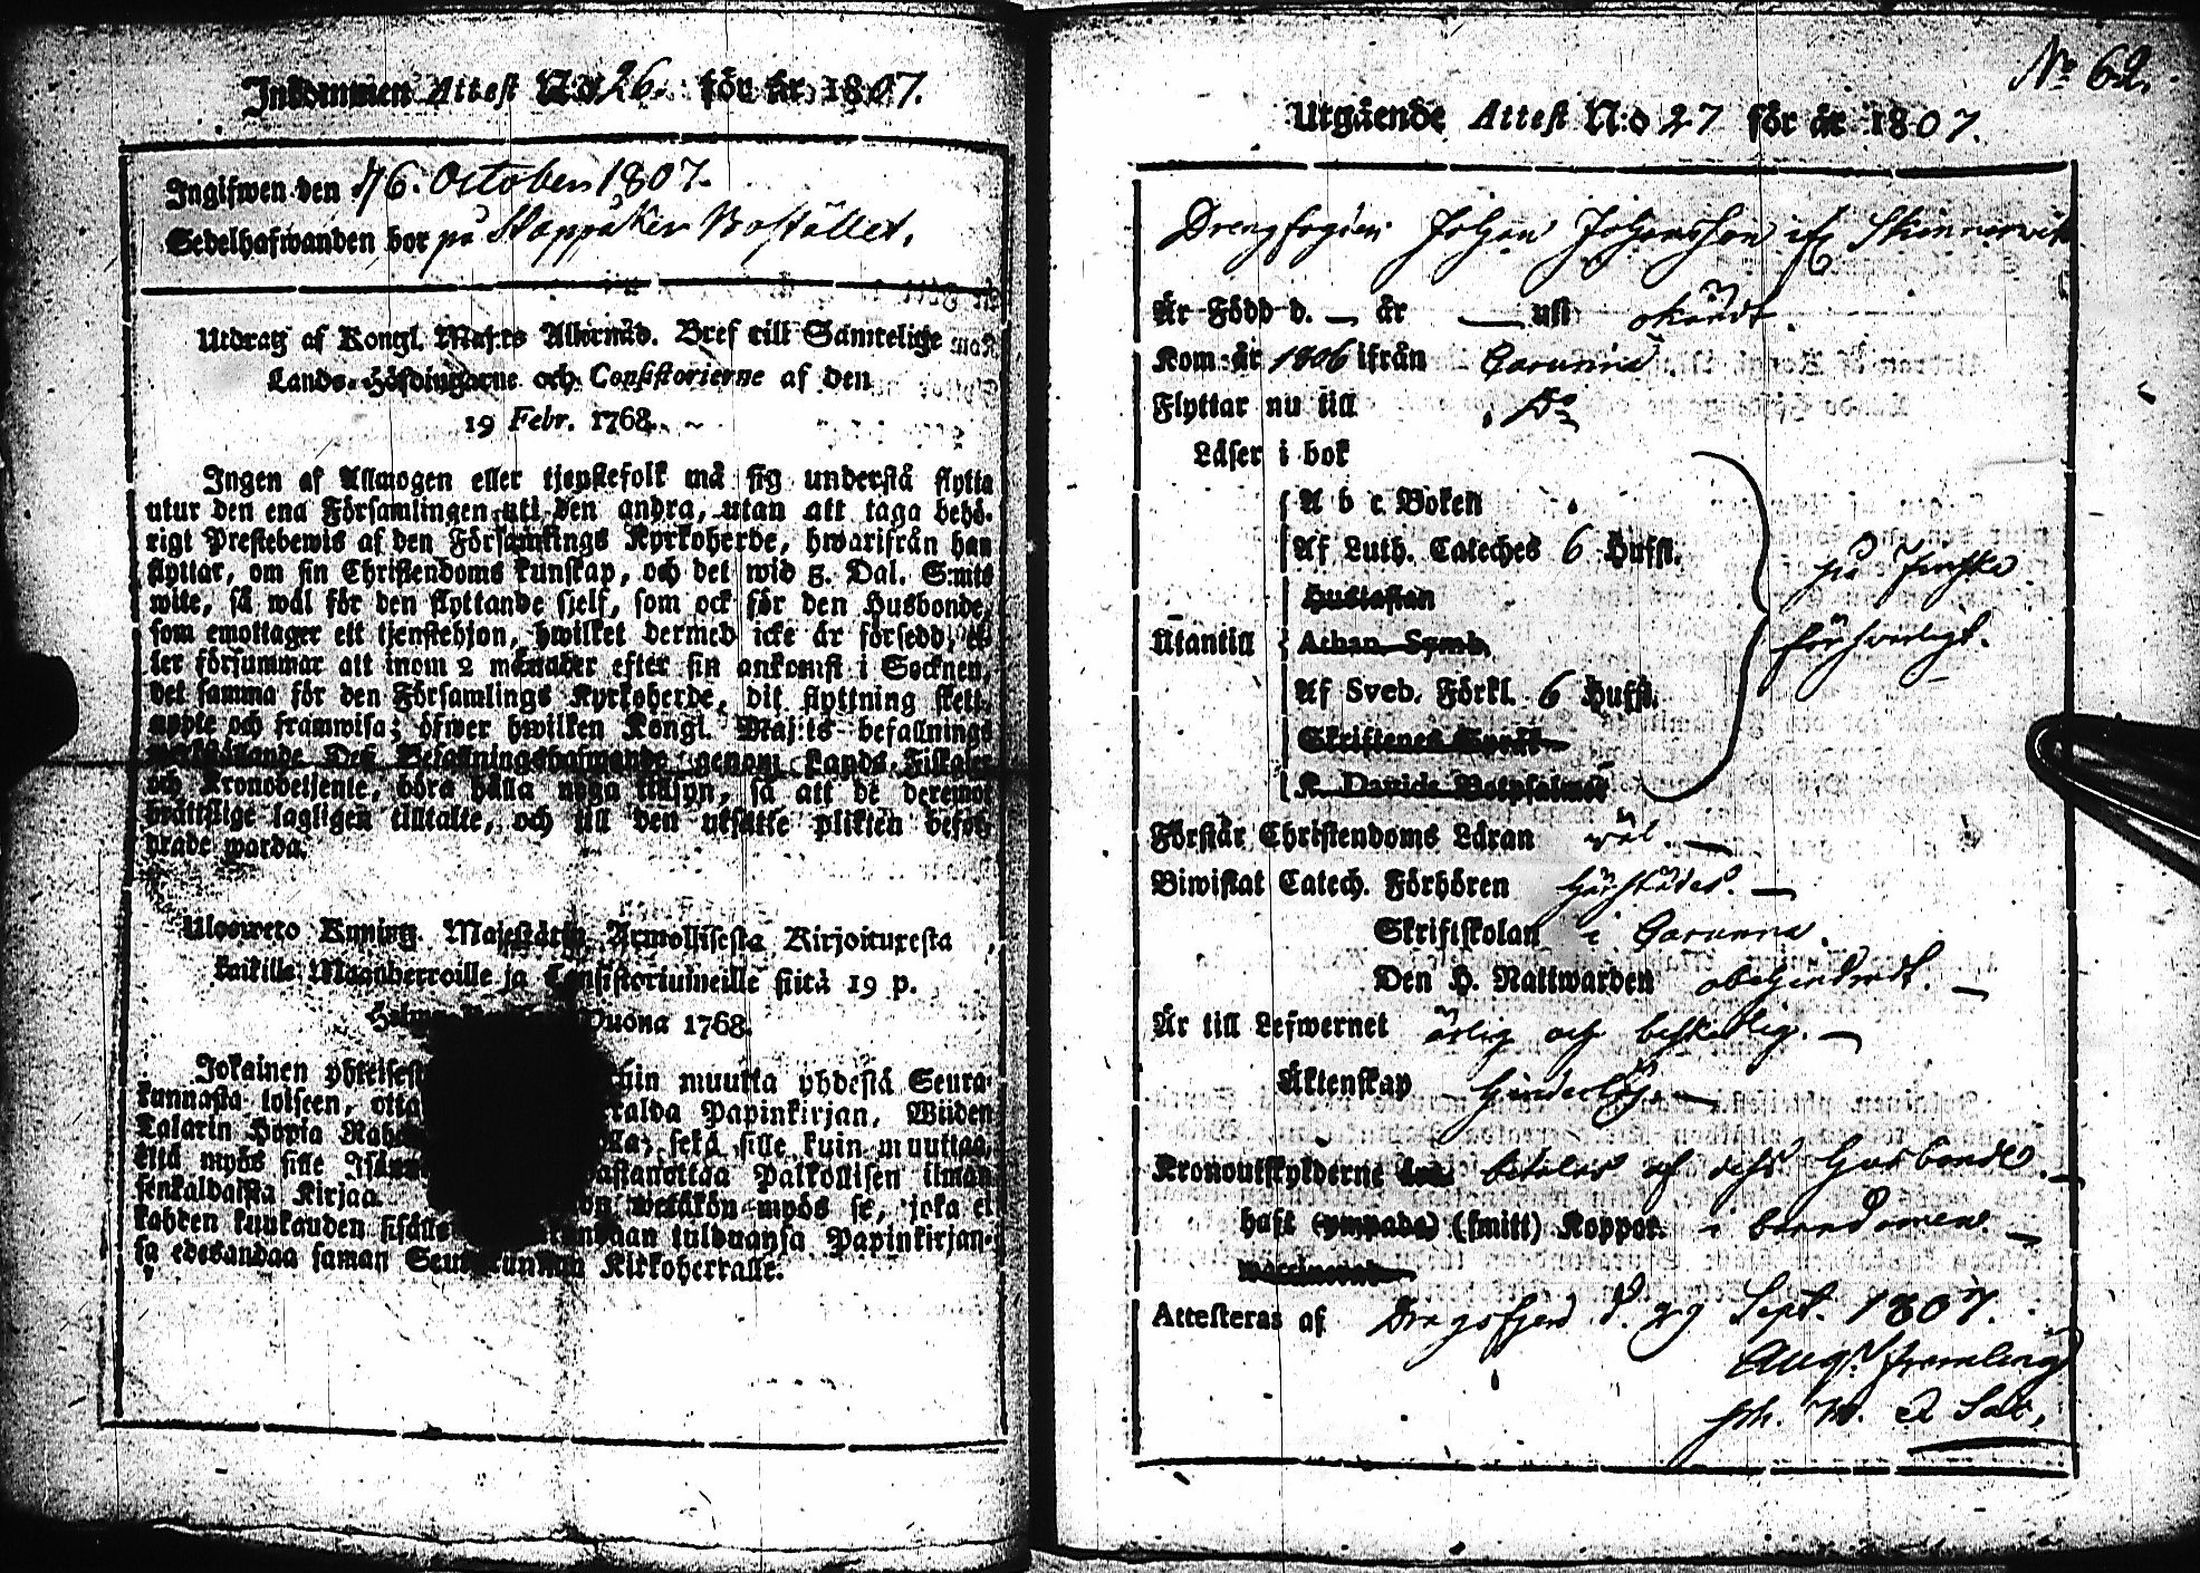 Inkommen Attest N:o 26. för år 1807.
Ingifwen den 16. October 1807.
Sedelhafwanden bor på Stappåker Bostället.
Utdrag af Kongl. Maj:ts Allernåd. Bref till Samtelige
Lands-Höfdingarne och Consistorierne af den
19 Febr. 1768.
Ingen af Allmogen eller tjenstefolk må sig understå flytta
utur den ena Församlingen uti den andra, utan att taga behö-
rigt Prestebewis af den Församlings Kyrkoherde, hwarifrån han
flyttar, om sin Christendoms kunskap, och det wid 5. Dal. S:mts
wite, så wäl för den flyttande sjelf, som ock för den Husbonde,
som emottager ett tjenstehjon, hwilket dermed icke är försedd, el-
ler försummar att inom 2 månader efter sin ankomst i Socknen,
det samma för den Församlings Kyrkoherde, dit flyttning skett,
uppte och framwisa; öfwer hwilken Kongl. Maj:ts befallnings
werkställande Dess Befallningshafwande genom Lands-Fiskaler
och Kronobetjente, böra hålla noga tillsyn, så att de deremot
brättslige lagligen tilltalte, och till den utsatte plikten befor-
drade warda.
Uloswero Kuning. Majestätin Armollisesta Kirjoituxesta
kaikille Maanherroille ja Consistoriumeille siitä 19 p.
Helmi Vuona 1768.
Jokainen yhteisest hin muutta yhdestä Seura-
kunnasta toiseen, otta ralda Papinkirjan, Wiiden
Talarin Hopia Raha olla; sekä sille kuin muuttaa,
että myös sille Isänn astanottaa Palkollisen ilman
senkaldaista Kirjaa. on wetäkön myös se, joka ei
kahden kuukauden sisälle undaan tulduansa Papinkirjan-
sa edesandaa saman Seurakunnan Kirkoherralle.
No 62.
Utgående Attest N:o 27 för år 1807.
Drengfogden Johan Johansson ifr. Skinnarwik
Är Född d. — år — uti okändt.
Kom år 1806 ifrån Corunna
Flyttar nu till Do
Läser i bok
A b c Boken
Af Luth. Cateches 6 Hufst.
på Finska
Hustaflan
Utantill Athan. Symb.
förswarligt.
Af Sveb. Förkl. 6 Hufst.
Skriftenes Språk
K. Davids Botpsalmer
Förstår Christendoms Läran wäl. —
Biwistat Catech. Förhören härstädes. —
Skriftskolan i Corunna.
Den H. Nattwarden obehindradt. —
Är till Lefwernet ärlig och beskedlig. —
Äktenskap hinderlös. —
Kronoutskylderne betalas af dess Husbonde. —
haft (ympade) (smitt) Koppor. i barndomen —
vaccinerad
Attesteras af Dragsfjerd d. 29 Sept. 1807.
Aug. Framling